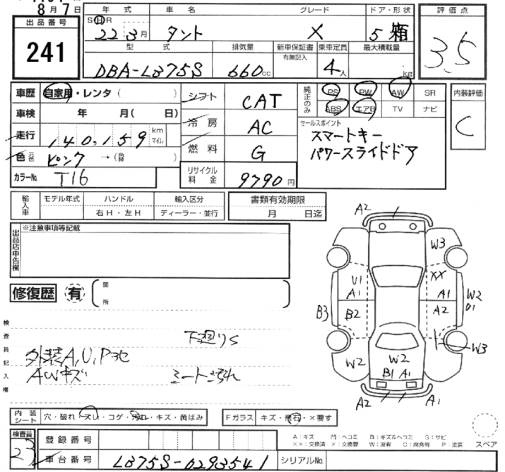 8月7日
出品番号
241
年式
車名
グレード
ドア・形状
評価点
SHR
22年3月
タント
X
5 箱
3.5
型式
排気量
新車保証書
有無記入
乗車定員
最大積載量
DBA-L375S
660cc
4人
車歴 自家用・レンタ( )
車検 年 月( 日)
走行 140,159 km マイル
色 ピンク → (替)
カラーNo. T16
シフト CAT
冷房 AC
燃料 G
リサイクル料金 9790円
純正のみ
PS PW AW SR
ABS エアB TV ナビ
内装評価
C
セールスポイント
スマートキー
パワースライドドア
輸入車
モデル年式
ハンドル
右H・左H
輸入区分
ディーラー・並行
書類有効期限
月 日迄
出品店申告欄
※注意事項等記載
修復歴 有
箇所
検査員記入欄
下廻りS
外装A,U,P他
AWキズ
シートゴムれ
A2
A2
W3
U1
XX
A1
A1
B3
B2
A2
W2
D1
W3
W2
B1 A1
A2
A2
内装シート 穴・破れ・スレ・コゲ・汚れ・キズ・黄ばみ
Fガラス キズ・飛石・×要す
A:キズ M:ヘコミ B:キズ&ヘコミ S:サビ
××:交換済 ×:交換要 W:波 C:腐食 P:塗装
スペア
検査員
23
登録番号
車台番号 L375S-0293541
シリアルNo.